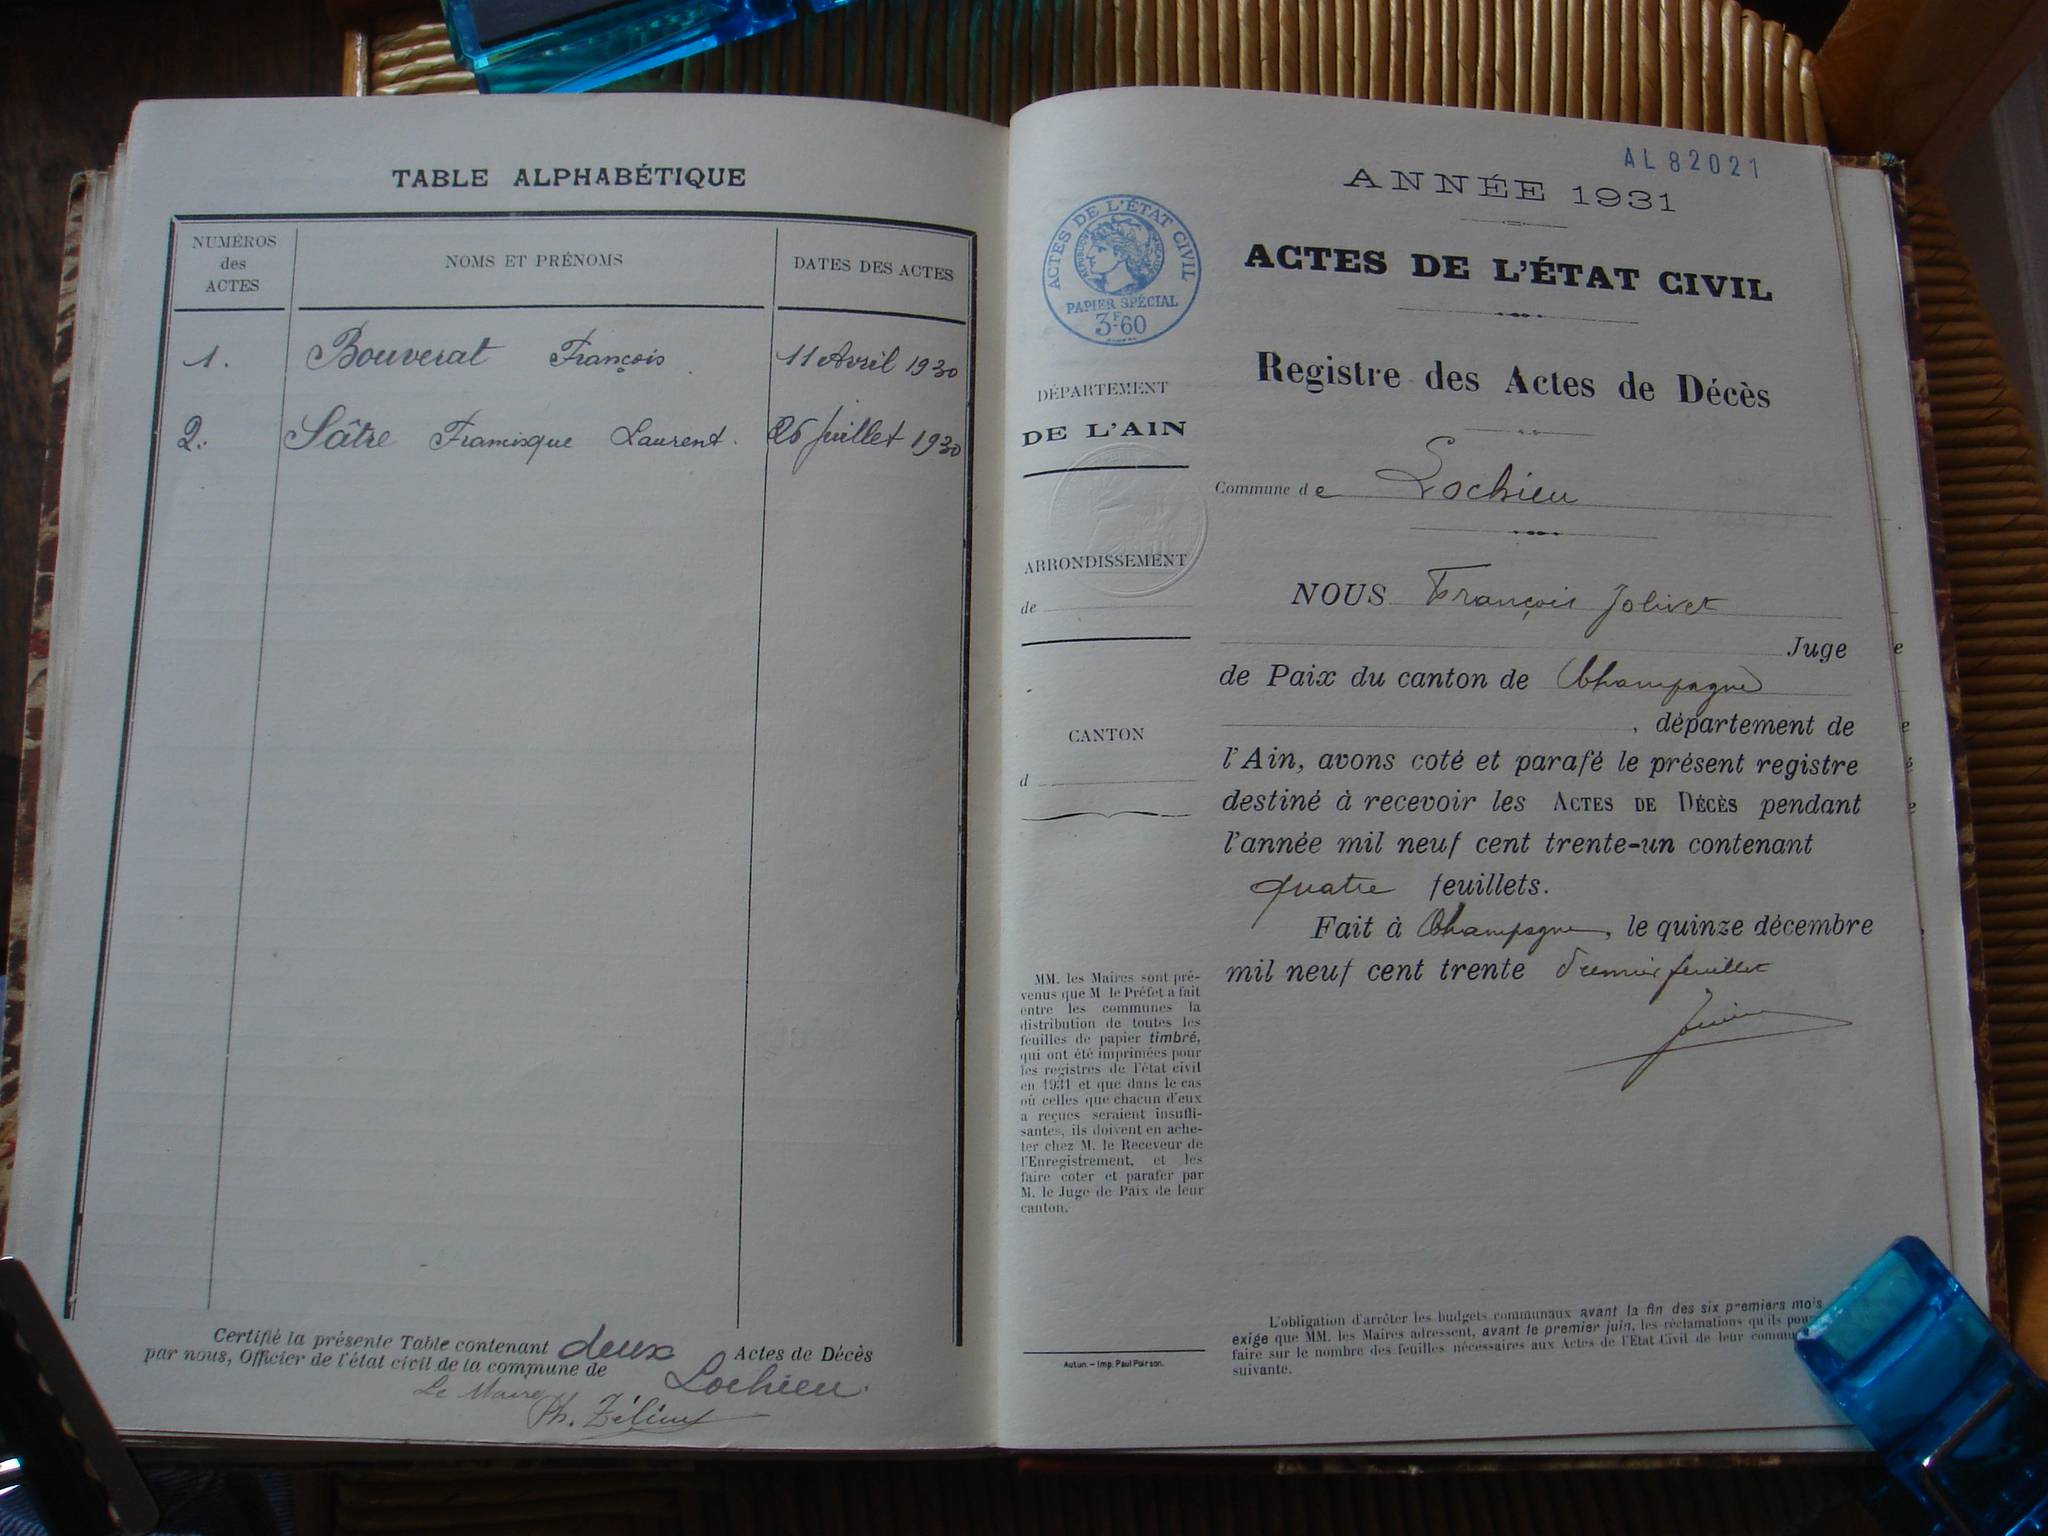 TABLE ALPHABÉTIQUE
NUMÉROS
des
ACTES
NOMS ET PRÉNOMS
DATES DES ACTES
1. Bouverat François 11 Avril 1930
2. Sâtre Francisque Laurent. 26 Juillet 1930
Certifié la présente Table contenant deux Actes de Décès
par nous, Officier de l'état civil de la commune de Lochieu.
Le Maire
Ph.
AL 82021
ANNÉE 1931
ACTES DE L'ÉTAT CIVIL
RÉPUBLIQUE FRANÇAISE
PAPIER SPÉCIAL
3F.60
ACTES DE L'ÉTAT CIVIL
Registre des Actes de Décès
DÉPARTEMENT
DE L'AIN
Commune de Lochieu
ARRONDISSEMENT
de
CANTON
d
NOUS François Jolivet
Juge
de Paix du canton de Champagne
, département de
l'Ain, avons coté et parafé le présent registre
destiné à recevoir les ACTES DE DÉCÈS pendant
l'année mil neuf cent trente-un contenant
quatre feuillets.
Fait à Champagne, le quinze décembre
mil neuf cent trente Premier feuillet
MM. les Maires sont pré-
venus que M le Préfet a fait
entre les communes la
distribution de toutes les
feuilles de papier timbré,
qui ont été imprimées pour
les registres de l'état civil
en 1931 et que dans le cas
où celles que chacun d'eux
a reçues seraient insuffi-
santes, ils doivent en ache-
ter chez M. le Receveur de
l'Enregistrement, et les
faire coter et parafer par
M. le Juge de Paix de leur
canton.
Autun. – Imp. Paul Poirson.
L'obligation d'arrêter les budgets communaux avant la fin des six premiers mois
exige que MM. les Maires adressent, avant le premier juin, les réclamations qu'ils
faire sur le nombre des feuilles nécessaires aux Actes de l'Etat Civil de leur
suivante.